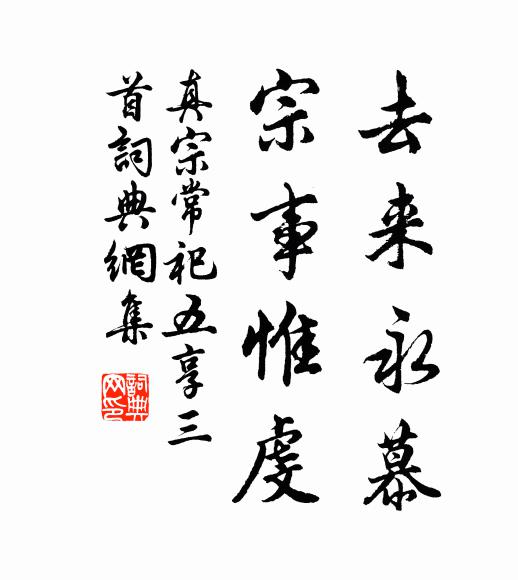 去来永慕
宗事惟虔
真宗常祀五享三
首詞典網集
詞典
网印